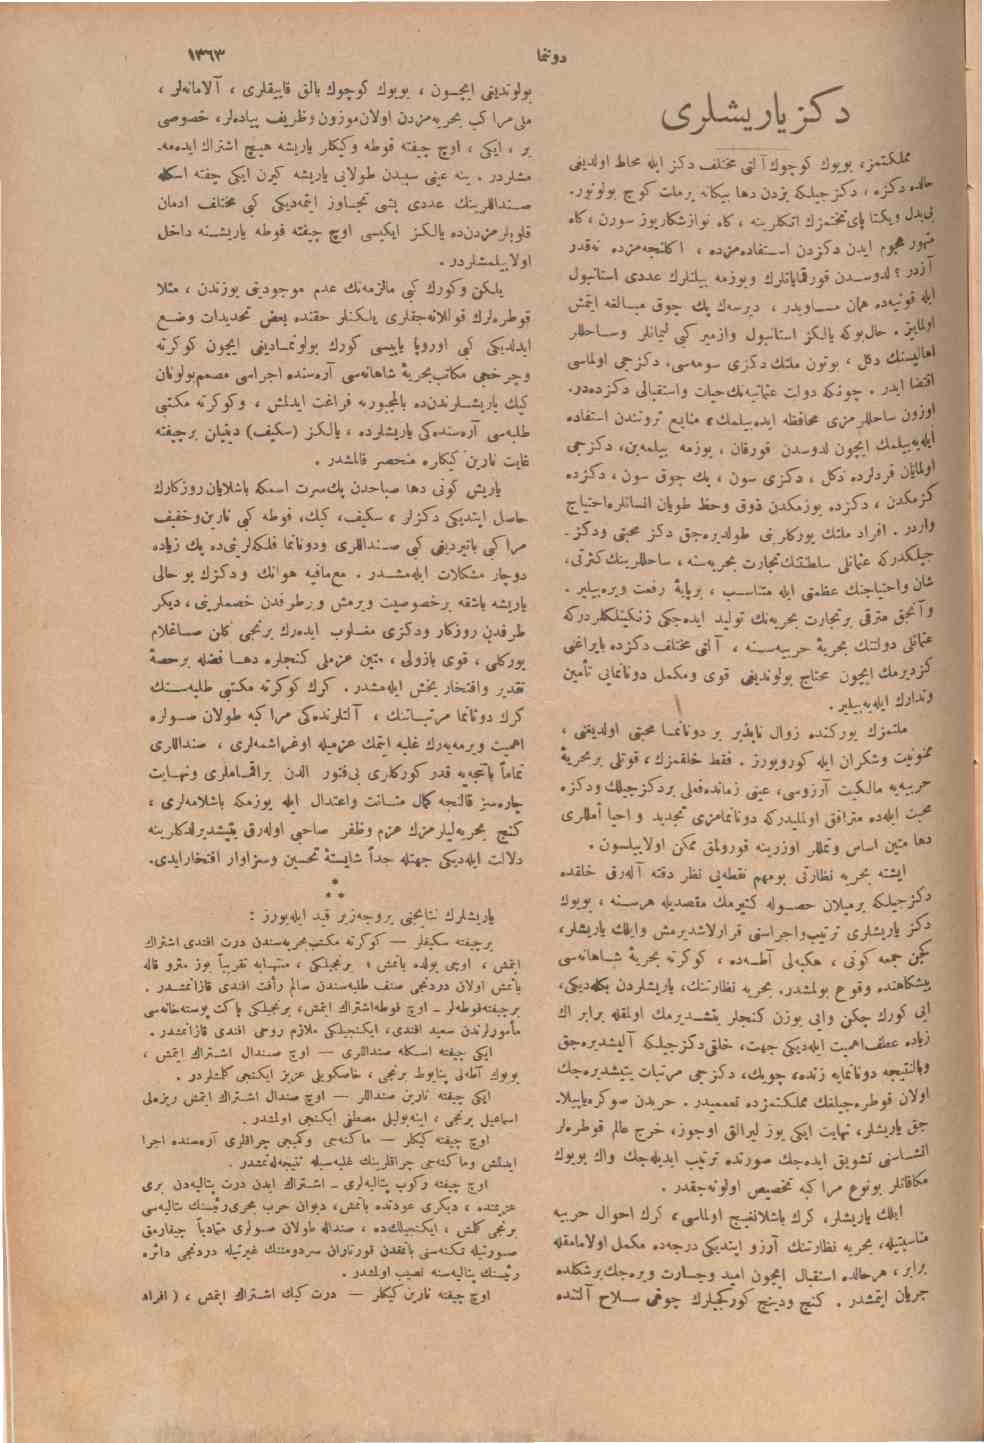 دوننما
١٣٦٣
دكز ياريشلرى
مملكتمز، بويوك كوچوك آلتى مختلف دكز ايله محاط اولديغى
حالده دكزه ، دكزجيلكه بزدن دها بيكانه برملت كوچ بولونور.
بى‌بدل ويكتا پاى‌تختمزك اتكلرينه ، كاه نوازشكاريوز سورن ، كاه
متهور هجوم ايدن دكزدن استفاده‌مزده ، اكلنجه‌مزده نه‌قدر
آزدر ؟ لدوسدن قورقمايانلرك ويوزمه بيلنلرك عددى استانبول
ايله قونيه‌ده همان مساويدر ، ديرسه‌ك پك چوق مبالغه ايتمش
اولمايز . حال‌بوكه يالكز استانبول وازمير كبى ليمانلر وساحللر
اهاليسنك دكل ، بوتون ملتك دكزى سومه‌سى، دكزجى اولماسى
اقتضا ايدر . چونكه دولت عثمانيه‌نك حيات واستقبالى دكزده‌در.
اوزون ساحللرمزى محافظه ايده‌بيلمك، منابع ثروتندن استفاده
ايله‌يه‌بيلمك ايچون لدوسدن قورقان ، يوزمه بيلمه‌ين، دكزجى
اولمايان فردلرده دكل ، دكزى سون ، پك چوق سون ، دكزده
كزمكدن ، دكزده يوزمكدن ذوق وحظ طويان انسانلره احتياج
واردر . افراد ملتك يوركلرينى طولديره‌جق دكز محبتى ودكز-
جيلكدركه عثمانلى سلطنتنك تجارت بحريه‌سنه ، ساحللرينك كثرتى،
شان واحتياجنك عظمتى ايله متناسب ، برپايهٔ رفعت ويره‌بيلير .
وآنجق مترقى برتجارت بحريه‌نك توليد ايده‌جكى زنكينلكلردركه
عثمانلى دولتنك بحريهٔ حربيه‌سنه ، آلتى مختلف دكزده بايراغنى
كزديرمك ايچون محتاج بولونديغى قوى ومكمل دونانمايى تأمين
وتدارك ايله‌يه‌بيلير .
ملتمزك يوركنده زوال ناپذير بر دونانما محبتى اولديغنى ،
ممنونيت وشكران ايله كورويورز . فقط خلقمزك، قوتلى بربحريهٔ
حربيه‌يه مالكيت آرزوسى، عينى زمانده‌فعلى بردكزجيلك ودكزه
محبت ايله‌ده مترافق اولمليدركه دونانمامزى تجديد و احيا أمللرى
دها متين اساس وتمللر اوزرينه قورولمق ممكن اولابيلسون .
ايشته بحريه نظارتى بومهم نقطه‌يى نظر دقته آله‌رق خلقده
دكزجيلكه برميلان حصوله كتيرمك مقصديله هرسنه ، بويوك
دكز ياريشلرى ترتيب‌واجراسنى قرارلاشديرمش وايلك ياريشلر،
كچن جمعه كونى ، هكبه‌لى آطه‌ده ، كوكرته بحريهٔ شاهانه‌سى
پيشكاهنده وقوع بولمشدر. بحريه نظارتنك، ياريشلردن بكله‌ديكى،
ايى كورك چكن وايى يوزن كنجلر يتشديرمك اولمقله برابر اك
زياده عطف‌اهميت ايله‌ديكى جهت، خلقى دكزجيلكه آليشديره‌جق
وبالنتيجه دونانمايه زنده، چويك، دكزجى مرتبات يتيشديره‌جك
اولان قوطره‌جيلغك مملكتمزده تعمميدر . حربدن صوكره‌ياپيلا-
جق ياريشلر، نهايت ايكى يوز ليرالق اوجوز، خرج عالم قوطره‌لر
انشاسنى تشويق ايده‌جك صورتده ترتيب ايديله‌جك واك بويوك
مكافاتلر بونوع مراكبه تخصيص اولونه‌جقدر .
ايلك ياريشلر، كرك باشلانغيج اولماسى، كرك احوال حربيه
مناسبتيله، بحريه نظارتنك آرزو ايتديكى درجه‌ده مكمل اولامامقله
برابر، هرحالده استقبال ايچون اميد وجسارت ويره‌جك‌برشكلده
جريان ايتمشدر . كنج ودينچ كوركجيلرك چوغى سلاح آلتنده
بولونديغى ايچون ، بويوك كوچوك بالق قاييقلرى ، آلامانه‌لر ،
ملى مراكب بحريه‌مزدن اولان‌موزون وظريف پياده‌لر، خصوصى
بر ، ايكى ، اوچ چيفته فوطه وكيكلر ياريشه هيچ اشتراك ايده‌مه-
مشلردر . ينه عينى سببدن طولايى ياريشه كيرن ايكى چفته اسكله
صنداللرينك عددى بشى تجاوز ايتمه‌ديكى كبى مختلف ادمان
قلوبلرمزدن‌ده يالكز ايكيسى اوچ چيفته فوطه ياريشنه داخل
اولابيلمشلردر .
يلكن وكورك كبى مالزمه‌نك عدم موجوديتى يوزندن ، مثلا
قوطره‌لرك قوللانه‌جقلرى يلكنلر حقنده بعض تحديدات وضع
ايدلديكى كبى اوروپا ياپيسى كورك بولونمادينى ايچون كوكرته
وچرخجى مكاتب‌بحريهٔ شاهانه‌سى آره‌سنده اجراسى مصمم‌بولونان
كيك ياريشلرندن‌ده بالمجبوريه فراغت ايدلمش ، وكوكرته مكتبى
طلبه‌سى آره‌سنده‌كى ياريشلرده ، يالكز (سكيف) دينيلن برچيفته
غايت نارين كيكلره منحصر قالمشدر .
ياريش كونى دها صباحدن پك‌سرت اسمكه باشلايان روزكارك
حاصل ايتديكى دكزلر ، سكيف، كيك، فوطه كبى نارين‌وخفيف
مراكبى باتيرديغى كبى صنداللرى ودونانما فلكه‌لرينى‌ده پك زياده
دوچار مشكلات ايله‌مشدر . مع‌مافيه هوانك ودكزك بو حالى
ياريشه باشقه برخصوصيت ويرمش وبرطرفدن خصملرينى ، ديكر
طرفدن روزكار ودكزى مغلوب ايده‌رك برنجى كلن صاغلام
يوركلى ، قوى بازولى ، متين عزملى كنجلره دها فضله برحصهٔ
تقدير وافتخار بخش ايله‌مشدر. كرك كوكرته مكتبى طلبه‌سنك
كرك دونانما مرتباتنك ، آلتلرنده‌كى مراكبه طولان صولره
اهميت ويرمه‌يه‌رك غلبه ايتمك عزميله اوغراشمه‌لرى ، صنداللرى
تماماً باتنجه‌يه قدر كوركلرى بى‌فتور الدن براقماملرى ونهايت
چاره‌سز قالنجه كمال متانت واعتدال ايله يوزمكه باشلامه‌لرى ،
كنج بحريه‌ليلرمزك عزم وظفر صاحبى اوله‌رق يتيشديرلدكلرينه
دلالت ايله‌ديكى جهتله جداً شايستهٔ تحسين وسزاوار افتخارايدى.
* * *
ياريشلرك نتايجنى بروجه‌زير قيد ايله‌يورز :
برچيفته سكيفلر — كوكرته مكتب‌بحريه‌سندن درت افندى اشتراك
ايتمش ، اوچى يولده باتمش ؛ برنجيلكى ، منتهايه تقريباً يوز مترو قاله
باتمش اولان دردنجى صنف طلبه‌سندن سالم رأفت افندى قازانمشدر .
برچيفته‌فوطه‌لر — اوچ فوطه‌اشتراك ايتمش، برنجيلكى پاكت پوسته‌خانه‌سى
مأمورلرندن سعيد افندى، ايكنجيلكى ملازم روحى افندى قازانمشدر .
ايكى چيفته اسكله صنداللرى — اوچ صندال اشتراك ايتمش ،
بويوك آطه‌لى پنايوط برنجى ، خاصكويلى عزيز ايكنجى كلمشلردر .
ايكى چيفته نارين صنداللر — اوچ صندال اشتراك ايتمش ريزه‌لى
اسماعيل برنجى ، اينه‌بوليلى مصطفى ايكنجى اولمشدر .
اوچ چيفته كيكلر — ماكنه‌جى وكميجى چراقلرى آره‌سنده اجرا
ايدلمش وماكنه‌جى چراقلرينك غلبه‌سيله نتيجه‌لنمشدر .
اوچ چيفته ركوب پتاليه‌لرى — اشتراك ايدن درت پتاليه‌دن برى
عزيمتده ، ديكرى عودتده باتمش، ديوان حرب بحرى‌رئيسنك پتاليه‌سى
برنجى كلمش ، ايكنجيلك‌ده ، صنداله طولان صولرى متمادياً چيقارمق
صورتيله تكنه‌سنى باتمقدن قورتاران سردومننك غيرتيله دردنجى دائره
رئيسنك پتاليه‌سنه نصيب اولمشدر .
اوچ چيفته نارين كيكلر — درت كيك اشتراك ايتمش ، ( افراد